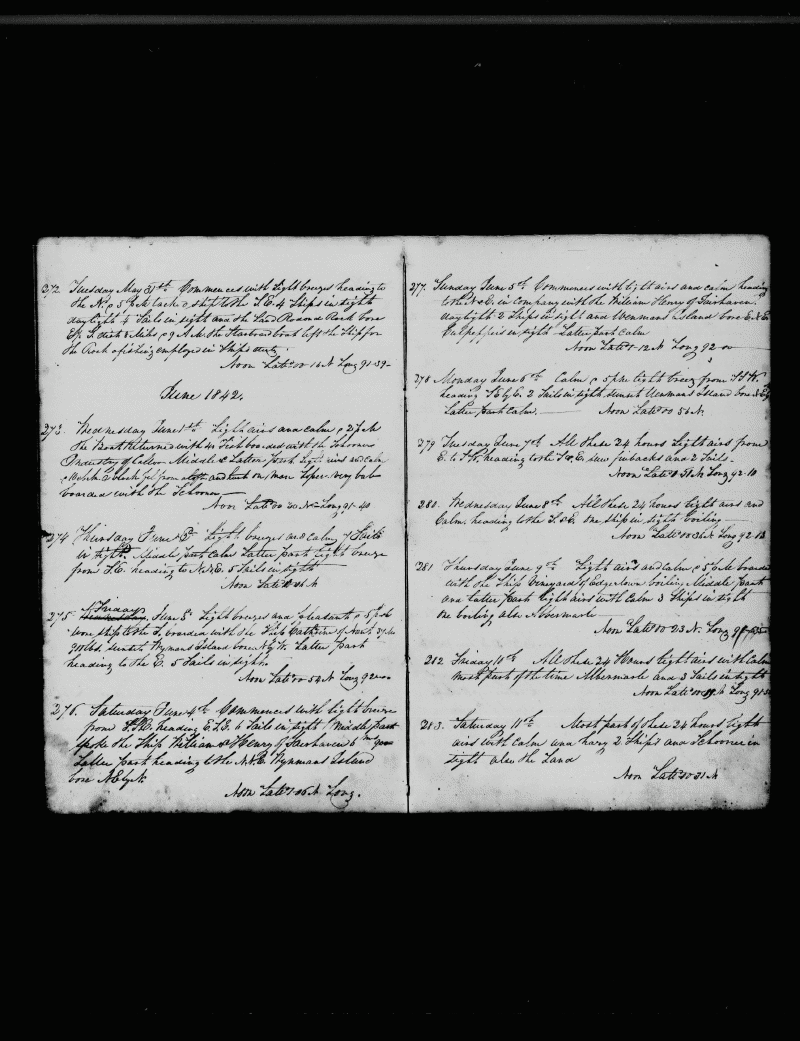 272. Tuesday May 31th Commences with light breezes heading to
the N. & 5 P.M. tack ship to the S.E. 4 Ships in sight
daylight 4 Sails in sight and the Land Redondo Rock bore
E. dist 8 Miles & 9 A.M. the Starboard boat left the Ship for
the Rock a fishing employed in Ships duty
Noon Latd 00 14 N Long 91-39-
June 1842.
273. Wednesday June 1th. Light airs and calm & 2 P.M.
the Boat Returned with Fish boarded with the Schooner
Industry of Middle & Latter part Light airs and calm
boarded with the Schooner
Noon Latd 00 30 N Long 91-40
274 Thursday June 2 Light breezes and calm 7 Sails
in sight Middle part Calm Latter part light breeze
from S.E. heading to N.N.E. 5 Sails in sight
Noon Latd 00 N
275. Friday June 3 Light breezes and pleasant & 5 P.M.
wore ship to the S. boarded with the Ship Catherine of Nant.
sunset Wymans Island bore N by W. Latter part
heading to the E. 5 Sails in sight.
Noon Latd 00 54 N Long 92-00
276. Saturday June 4th Commences with light breeze
from heading E.S.E. 6 Sails in sight Middle part
spoke the Ship William & Henry of Fairhaven
Latter part heading to the N.N.E. Wynmans Island
bore N.E by N.
Noon Latd 1 06 N Long.
277. Sunday June 5th Commences with light airs and calm heading
to the N.E. in company with the William Henry of Fairhaven.
daylight 2 Ships in sight and Wenmans island bore E.N.E.
Culpeppers in sight Latter part calm
Noon Latd 1-12 N Long 92-00
278 Monday June 6th Calm & 5 P.M. light breeze from S.S.W.
heading S.E by E. 2 Sails in sight sunset Wenmans Island bore N.E by
Latter part Calm. Noon Latd 00 54 N.
279 Tuesday June 7th All these 24 hours Light airs from
E. to S.W. heading to the S.E. saw finbacks and 2 Sails.
Noon Latd 0 51 N Long 92-10
280. Wednesday June 8th All these 24 hours light airs and
Calm. heading to the S.S.E. one ship in sight boiling
Noon Latd 00 36 N Long 92.12
281 Thursday June 9th Light airs and calm & 5 o'clk boarded
with the Ship Vineyard of Edgartown boiling Middle part
and latter part light airs with Calm 3 Ships in sight
one boiling also Albermarle
Noon Latd 00 23 N. Long
282 Friday 10th All these 24 Hours light airs with Calm
most part of the time Albermarle and 3 Sails in sight
Noon Latd 00 N Long 91
283. Saturday 11th Most part of these 24 hours light
airs with Calm and hazy 2 Ships and Schooner in
sight also the Land
Noon Latd 00 31 N